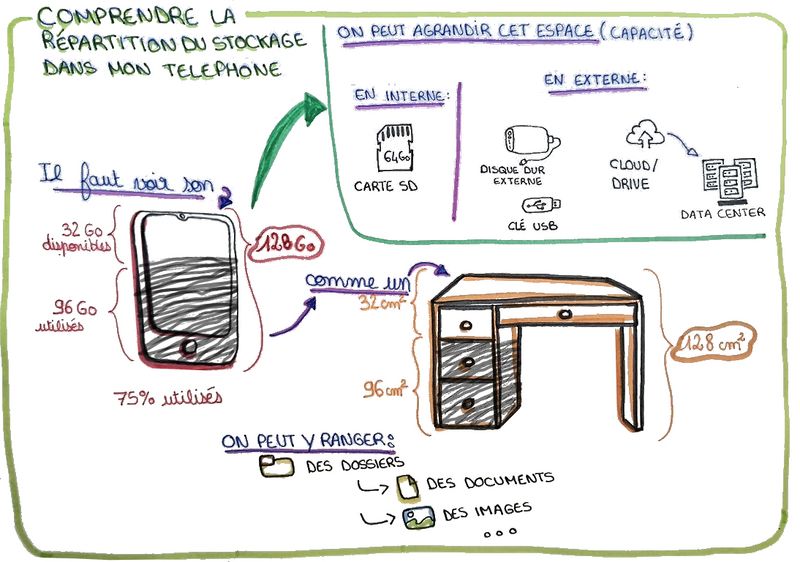 COMPRENDRE LA
RÉPARTITION DU STOCKAGE
DANS MON TELEPHONE
ON PEUT AGRANDIR CET ESPACE (CAPACITÉ)
EN INTERNE:
EN EXTERNE:
64Go
CARTE SD
DISQUE DUR
EXTERNE
CLÉ USB
CLOUD/
DRIVE
DATA CENTER
Il faut voir son
32 Go
disponibles
128Go
96 Go
utilisés
75% utilisés
comme un
32 cm²
96 cm²
128 cm²
ON PEUT Y RANGER:
DES DOSSIERS
DES DOCUMENTS
DES IMAGES
...